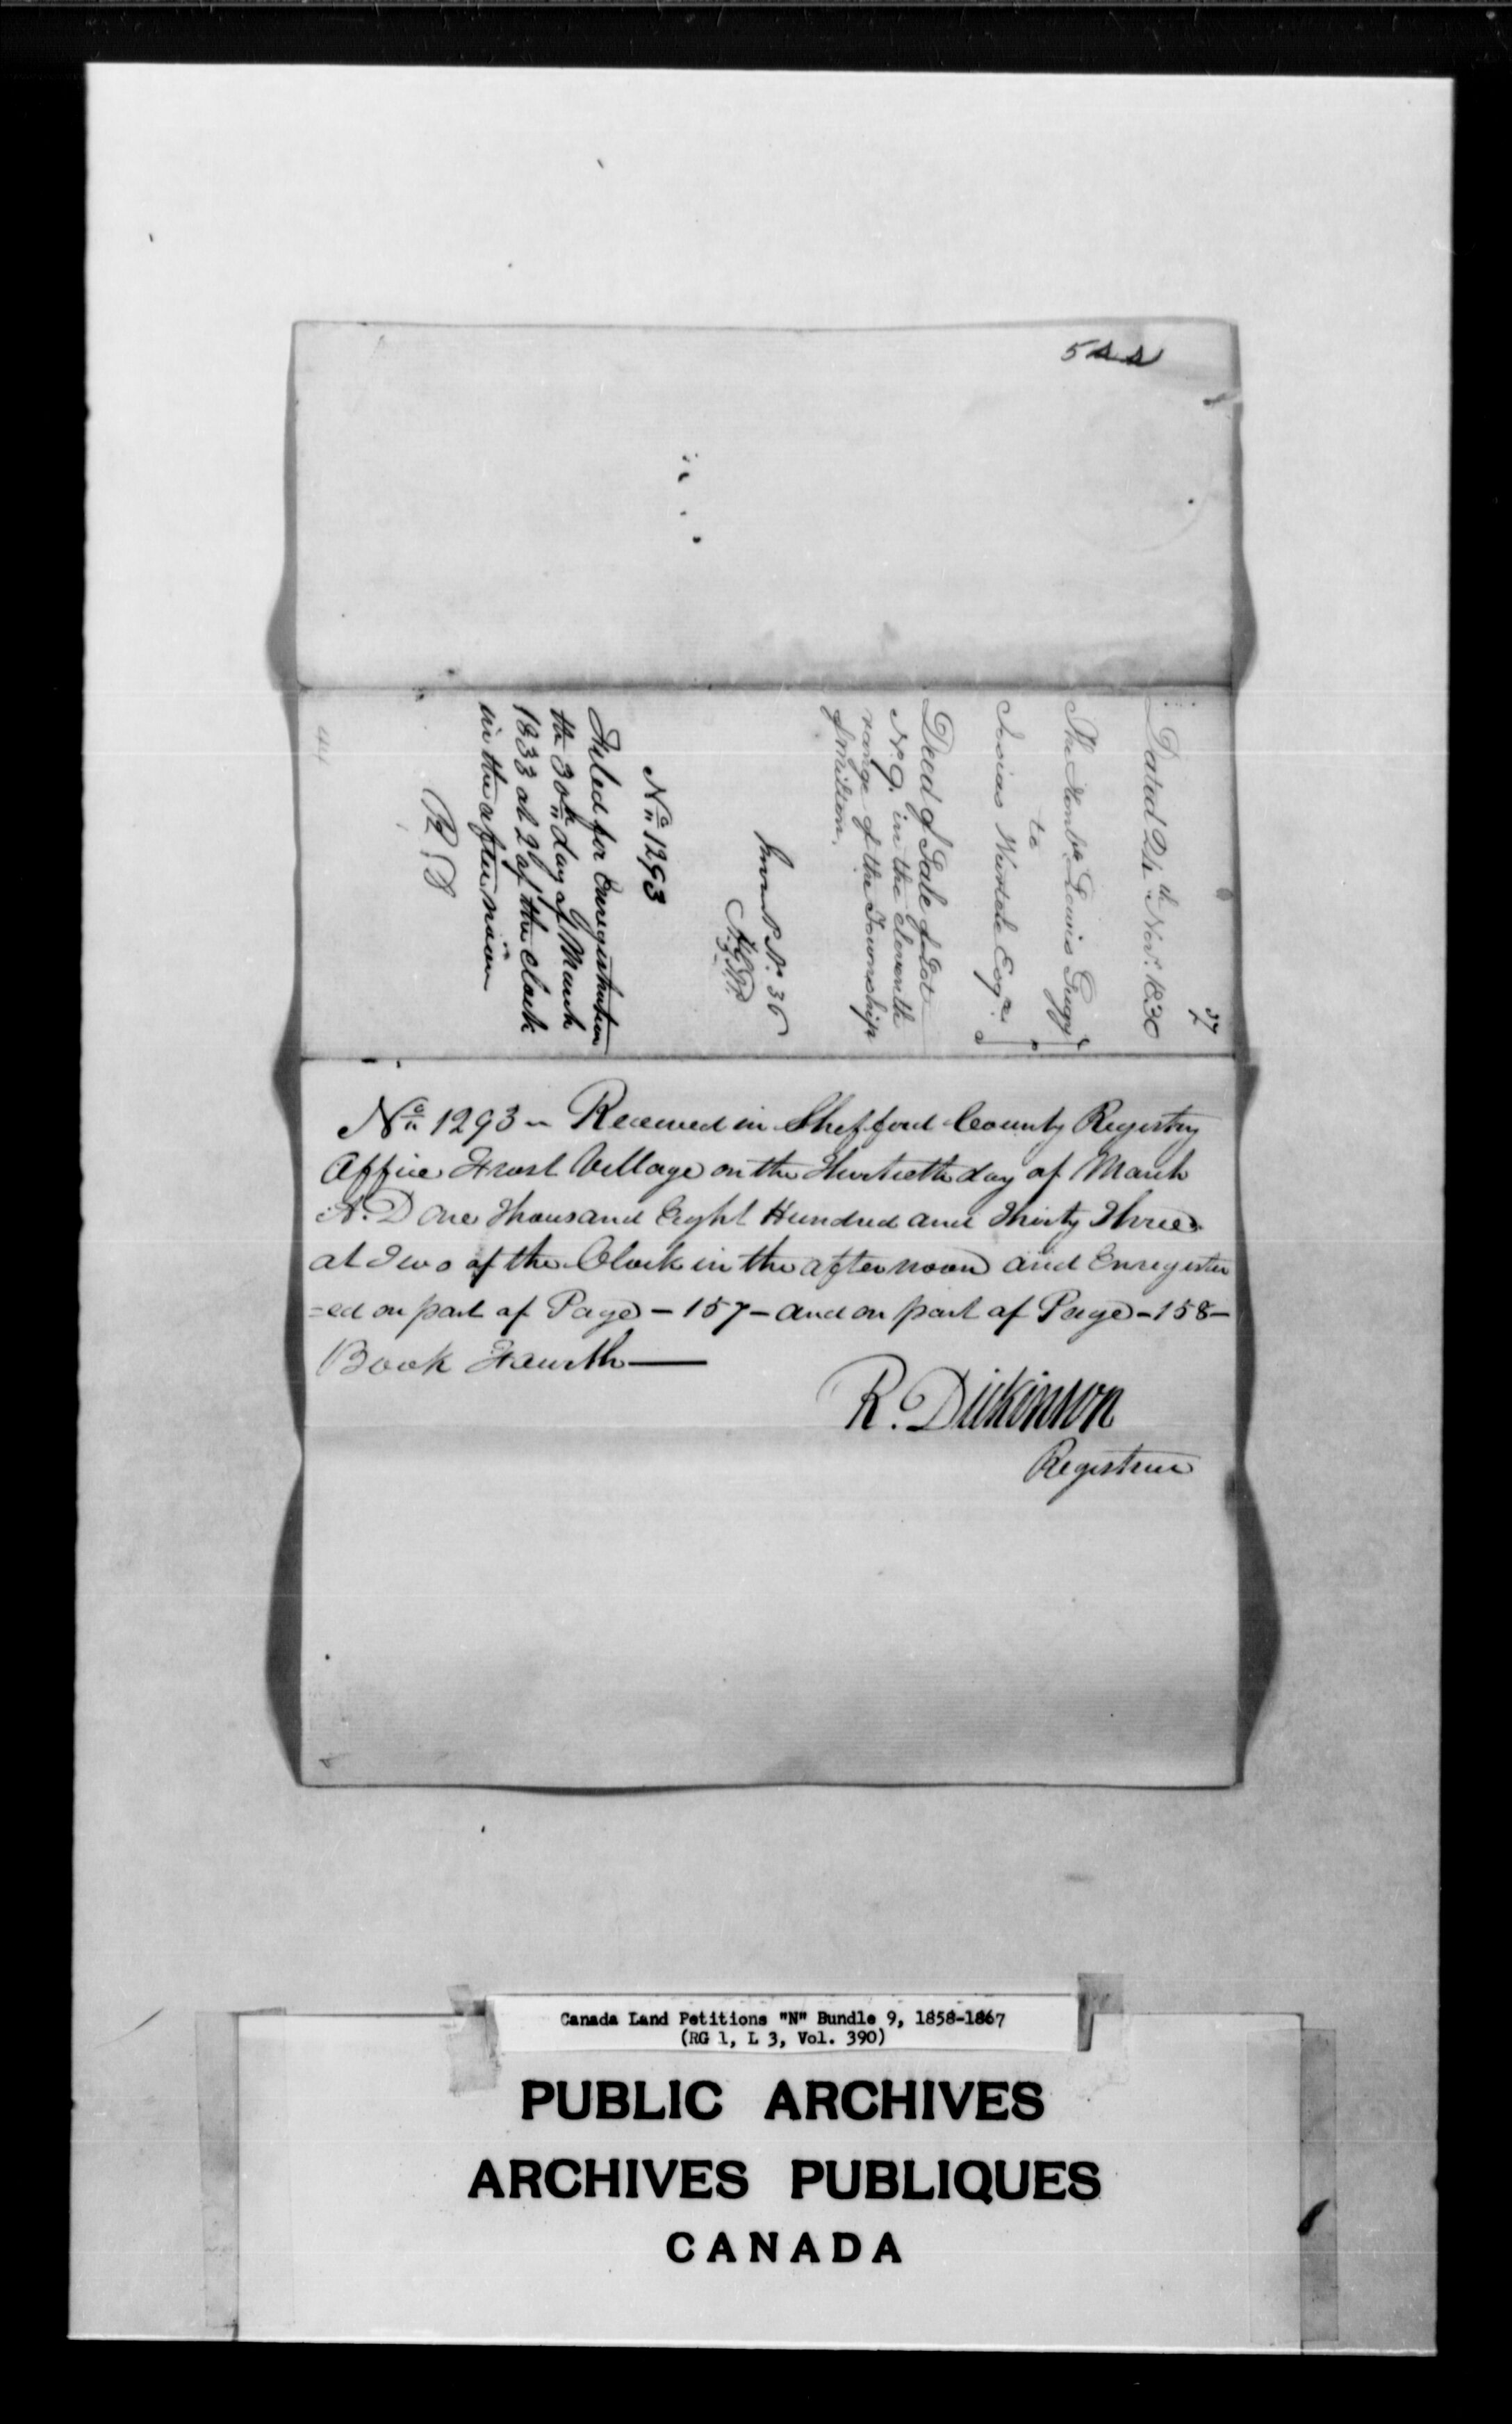 544
37
Dated 24th Novr. 1830
The Honble Louis Gugy
to
Josias Wurtele Esqr.
Deed of Sale of Lot
No. 9. in the eleventh
range of the Township
of Milton.
No. 36
No 1293
Filed for Enregistration
the 30th day of March
1833 at 2 of the Clock
in the afternoon
R D
No 1293 - Received in Shefford County Registry
Office Frost Village on the Thirtieth day of March
A. D One Thousand Eight Hundred and Thirty Three
at Two of the Clock in the afternoon and Enregister
=ed on part of Page - 157 - and on part of Page - 158 -
Book Fourth
R. Dickinson
Registrar
Canada Land Petitions "N" Bundle 9, 1858-1867
(RG 1, L 3, Vol. 390)
PUBLIC ARCHIVES
ARCHIVES PUBLIQUES
CANADA